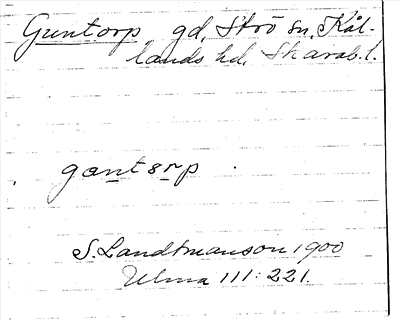 Guntorp gd, Strö sn, Kål-
lands hd, Skarab. l.
gantorp
S. Landtmanson 1900
Ulma 111:221